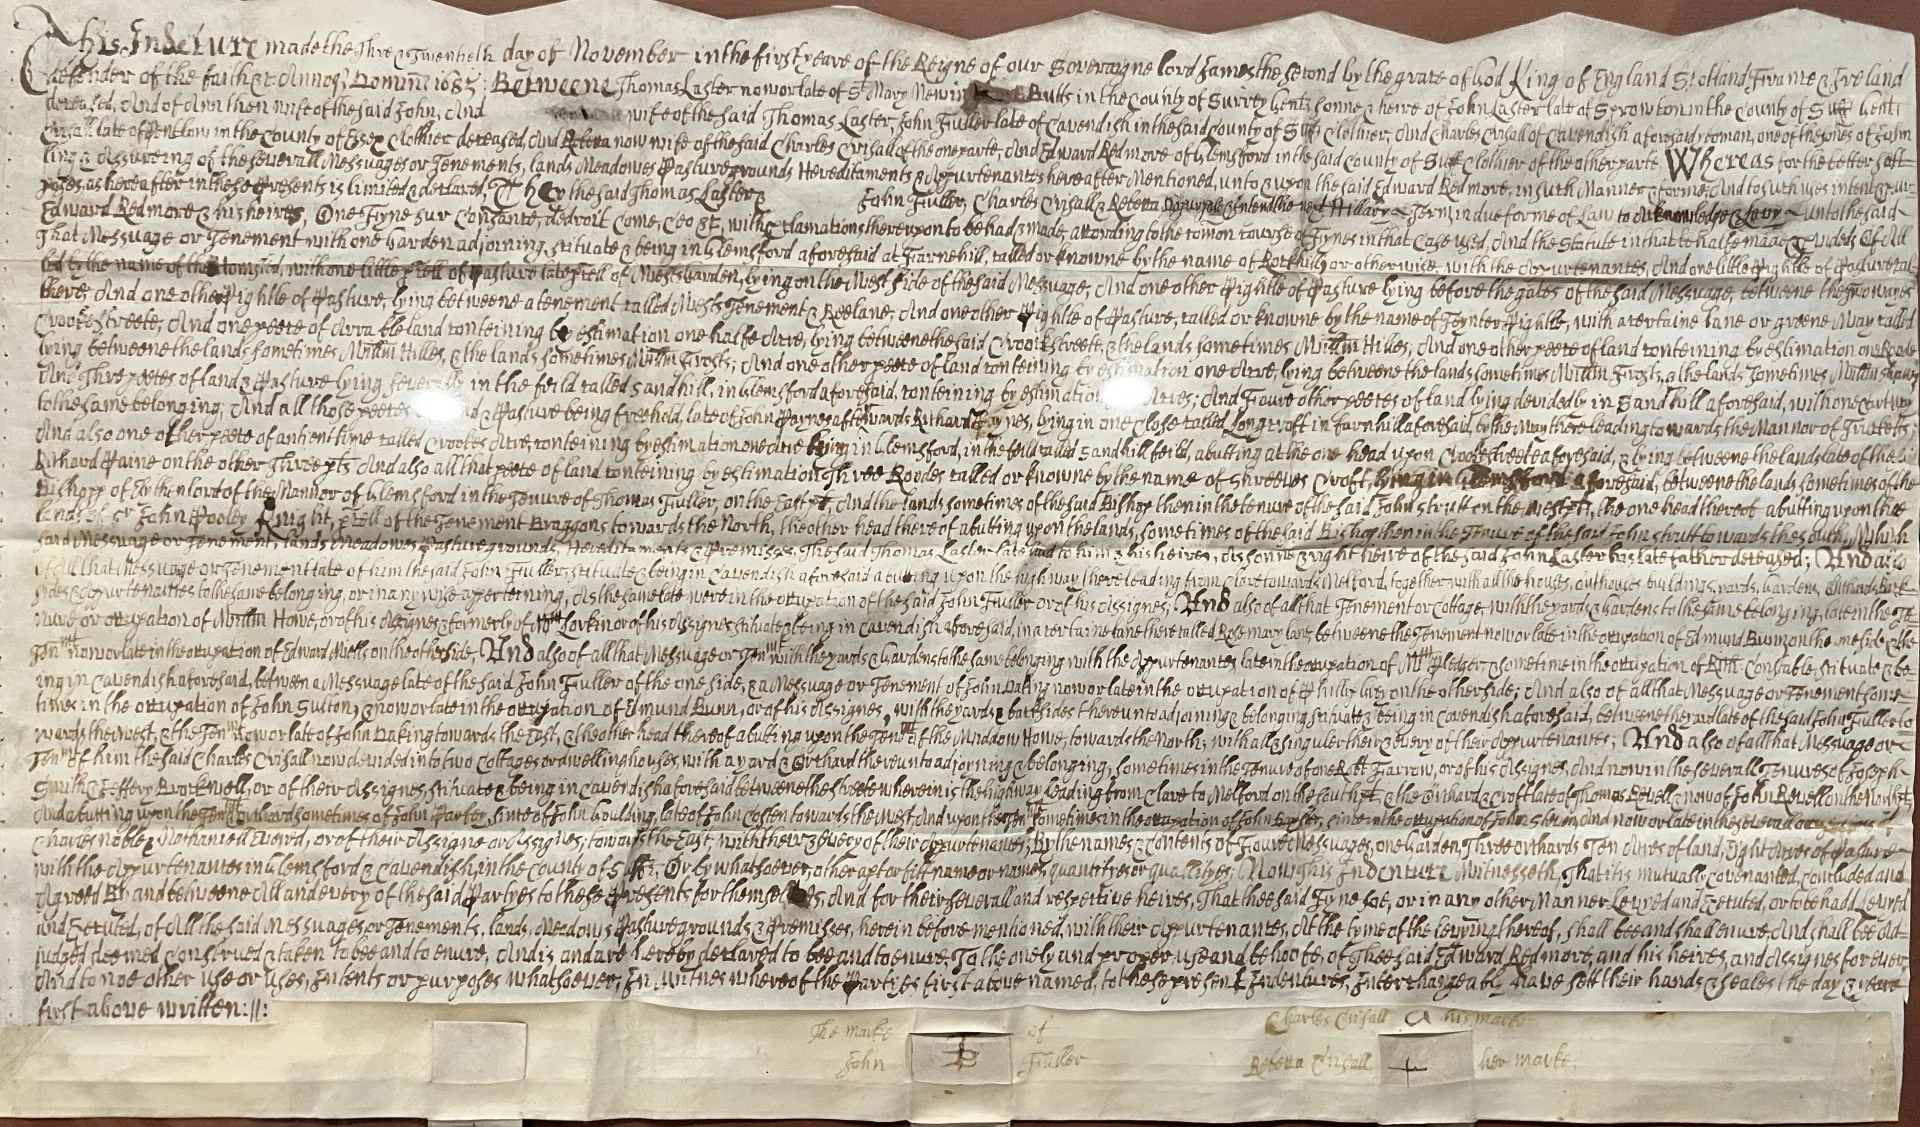 This Indenture made the Three & Twentieth day of November in the first yeare of the Reigne of our Soveraigne lord James the second by the grace of God King of England Scotland France & Ireland
defender of the faith &c Annoq Domini 1685: Betweene Thomas Laster now or late of St Mary Newin Butts in the County of Surrey Gent sonne & heire of John Laster late of Sprowton in the County of Suff Gent
deceased, And of Ann then wife of the said John, And wife of the said Thomas Laster, John Fuller late of Cavendish in the said County of Suff Clothier, And Charles Crisall of Cavendish aforesaid yeoman, one of the of John
Crisall late of Pentlow in the County of Essex Clothier deceased, And Rebecca now wife of the said Charles Crisall of the one parte, And Edward Redmore of Glemsford in the said County of Suff Clothier of the other parte Whereas for the better
& Assureing of the severall Messuages or Tenements, lands Meadowes Pasture grounds Hereditaments & Appurtenances hereafter Mentioned, unto & upon the said Edward Redmore, in such Manner & forme, And to such uses intents & pur
poses, as hereafter in these Presents is limited & declared, They the said Thomas Laster & John Fuller, Charles Crisall & Rebecca the next Hillary Terme in due forme of Law to Acknowledge & Levy unto the said
Edward Redmore & his heires, One Fyne sur Conzance, de droit come, Ceo &c, with Proclamations thereupon to be had & made, according to the comon course of Fynes in that Case used, And the Statute in that behalfe made & provided Of All
That Messuage or Tenement with one Garden adjoining, scituate & being in Glemsford aforesaid at Farnehill, called or knowne by the name of or otherwise with the Appurtenances, And one little Pightle of Pasture cal
led by the name of the with one little of pasture late of Wests Garden, lying on the West side of the said Messuage, And one other Pightle of Pasture lying before the gates of the said Messuage, betweene the
there, And one other Pightle of Pasture, lying betweene a tenement called Wests Tenement & Reelane, And one other Pightle of Pasture, called or knowne by the name of Joynter Pightle, with a certaine lane or greene Way called
Crooke Streete, And one peece of Arra ble land conteining by estimation one halfe Acre, lying betweene the said Crooke streete, & the lands sometimes Hilles, And one other peece of land conteining by estimation one Roode
lying betweene the lands sometimes Hilles, & the lands sometimes Frosts; And one other peece of land conteining by estimation one Acre, lying betweene the lands sometimes Frosts, & the lands sometimes
And Three peeces of land & Pasture lying severally in the feild called Sandhill, in Glemsford aforesaid, conteining by estimation Acres; And Foure other peeces of land lying devidedly in Sandhill aforesaid, with one
to the same belonging, And all those peeces & Pasture being freehold, late of John Paynes afterwards Richard Paynes, lying in one Close called Longcroft in farnhill aforesaid, by the Way there leading towards the Mannor of
And also one other peece of antient time called Crookes Acre, conteining by estimation one acre lying in Glemsford, in the feild called Sandhill feild, abutting at the one head upon Crooke streete aforesaid, & lying betweene the lands late of the
Richard Paine on the other Three And also all that peece of land conteining by estimation Three Roodes called or knowne by the name of Shreeves Croft, lying in Glemsford aforesaid, betweene the lands sometimes of the
Bishopp of Ely then lord of the Mannor of Glemsford in the Tenure of Thomas Fuller, on the East And the lands sometimes of the said Bishop then in the tenure of the said John Strutt on the West the one head thereof abutting upon the
lands of Sr John Pooley Knight, of the Tenement Braggons towards the North, the other head thereof abutting upon the lands, sometimes of the said Bishop then in the Tenure of the said John Strutt towards the South, Which
said Messuage or Tenement, lands Meadowes Pasture grounds, Hereditaments & Premisses, The said Thomas Laster late had to him & his heires, As sonne & right heire of the said John Laster his late father deceased; And also
of All that Messuage or Tenement late of him the said John Fuller, scituate & being in Cavendish aforesaid abutting upon the high way there leading from Clare towards Melford, together with all the houses, outhouses buildings, yards, Gardens Orchards
sides & Appurtenances to the same belonging, or in any wise apperteining, As the same late were in the occupation of the said John Fuller or of his Assignes, And also of all that Tenement or Cottage, with the yards & Gardens to the same belonging, late in the Te
nure or occupation of Howe, or of his Assignes & formerly of Larkin or of his Assignes scituate & being in Cavendish aforesaid, in a certaine lane there called Rosemary lane, betweene the Tenement now or late in the occupation of Edmund Bunn on the one side & the
now or late in the occupation of Edward Wells on the other side, And also of all that Messuage or with the yards & Gardens to the same belonging with the Appurtenances late in the occupation of Pledger & sometime in the occupation of Constable, Scituate & be
ing in Cavendish aforesaid, between a Messuage late of the said John Fuller of the one side, & a Messuage or Tenement of John Daking now or late in the occupation of on the other side; And also of all that Messuage or Tenement some
times in the occupation of John Sulton, & now or late in the occupation of Edmund Bunn, or of his Assignes, with the yards & backsides thereunto adjoining & belonging scituate & being in Cavendish aforesaid, betweene the yard late of the said John Fuller to
wards the West, & the now or late of John Daking towards the East, & the other head thereof abutting upon the of the Howe, towards the North; with all & singuler their & every of their Appurtenances; And also of all that Messuage or
of him the said Charles Crisall now devided into two Cottages or dwelling houses with a yard & Orchard thereunto adjoyning & belonging, sometimes in the Tenure of one Farrow, or of his Assignes, And now in the severall Tenures of Joseph
Smith & Jeffery Brockwell, or of their Assignes, scituate & being in Cavendish aforesaid betweene the streete wherein is the highway leading from Clare to Melford on the south & the Orchard & Croft late of Thomas Rewell & now of John Rewell on the North
And abutting upon the orchard sometimes of John Parker, since of John Goulding, late of John Costen towards the West And upon the sometimes in the occupation of John since in the occupation of John And now or late in the severall
Charles Noble & Nathaniell or of their Assigne or Assignes; towards the East, with their & every of their Appurtenances; By the names & Contents of Foure Messuages, one Garden, Three orchards Ten Acres of land, Eight Acres of Pasture
with the Appurtenances in Glemsford & Cavendish, in the County of Suff; Or by whatsoever, other apt or fitt name or names, quantities or quallityes; Now This Indenture Witnesseth, That it is mutually Covenanted, Concluded and
Agreed By and betweene All and every of the said Partyes to these Presents for themselves, And for their severall and respective heires, That the said Fyne soe, or in any other Manner Levyed and Executed, or to be had Levyed
and Executed, of All the said Messuages or Tenements, lands, Meadows Pasture grounds & Premisses, herein before mentioned, with their Appurtenances, At the tyme of the levying thereof, shall bee and shall enure, And shall bee Ad
judged deemed construed & taken to bee and to enure, And is and are hereby declared to bee and to enure, To the onely and proper use and behoofe, of The said Edward Redmore, and his heires, and Assignes for ever
And to noe other use or uses, Intents or purposes whatsoever, In witnes whereof the Partyes first above named, to these present Indentures, Interchangeably have sett their hands & seales the day & yeare
first above written:
The marke of
John Fuller
Charles Crisall his marke
Rebecca Crisall her marke